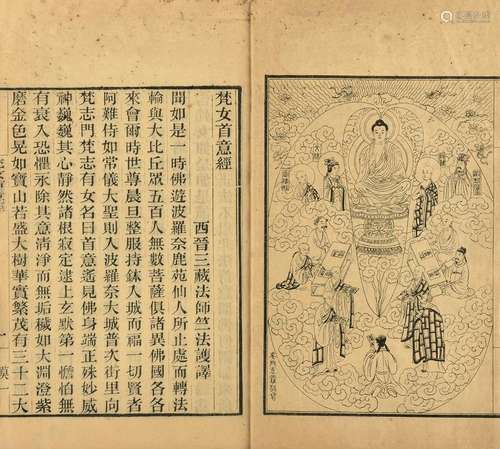 梵女首意經
西晉三藏法師竺法護譯
聞如是一時佛遊波羅奈鹿苑仙人所止處而轉法
輪與大比丘眾五百人無數菩薩俱諸異佛國各各
來會爾時世尊晨旦整服持鉢入城而福一切賢者
阿難侍如常儀大聖則入波羅奈大城普次街里向
梵志門梵志有女名曰首意遙見佛身端正殊妙威
神巍巍其心靜然諸根寂定逮上玄默第一憺怕無
有衰入恐懼永除其意清淨而無垢穢如大淵澄紫
磨金色晃如寶山若盛大樹華實繁茂有三十二大